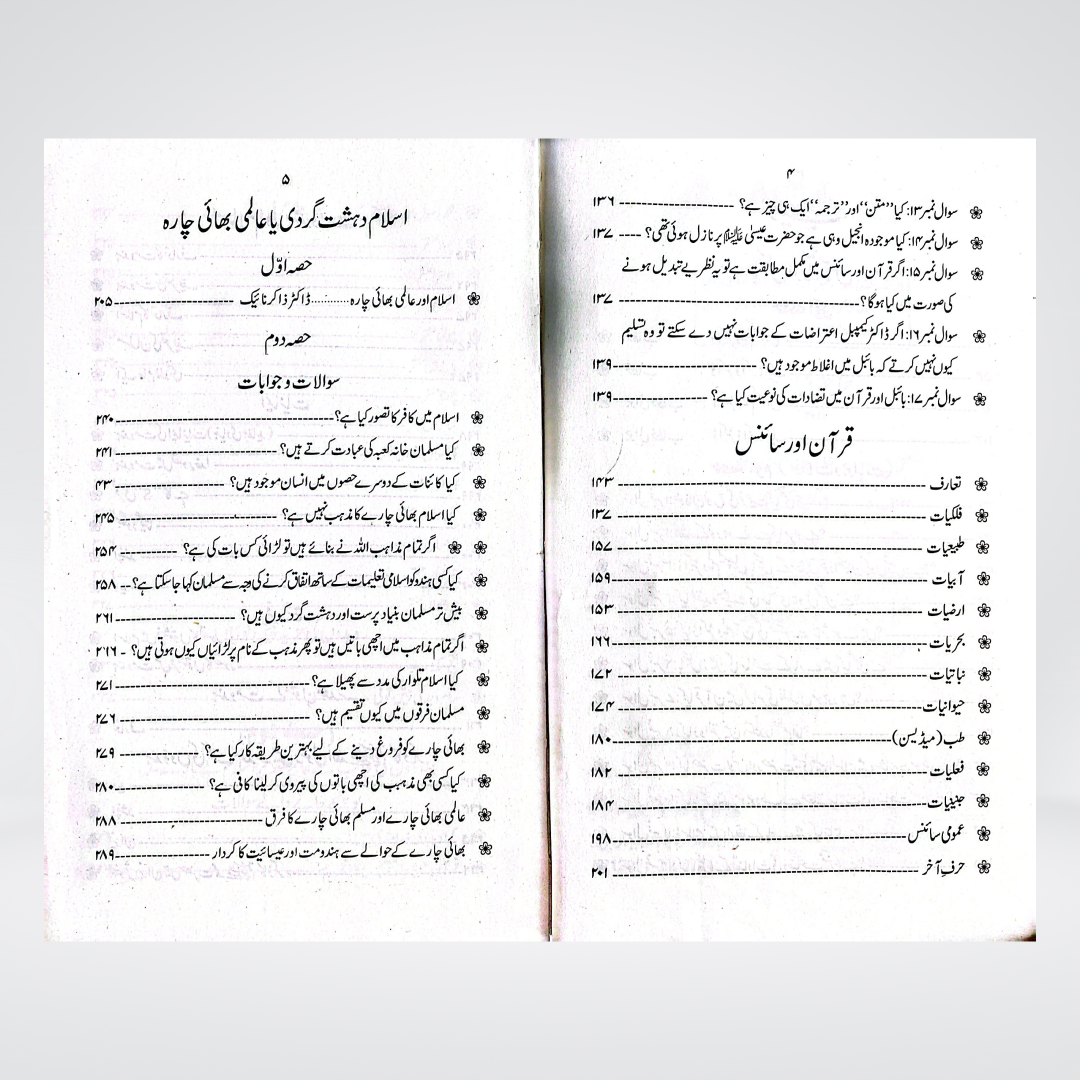 ۴
سوال نمبر ۱۳: کیا ’’متن‘‘ اور ’’ترجمہ‘‘ ایک ہی چیز ہے؟ ۱۳۶
سوال نمبر ۱۴: کیا موجودہ انجیل وہی ہے جو حضرت عیسیٰ علیہ السلام پر نازل ہوئی تھی؟ ۱۳۷
سوال نمبر ۱۵: اگر قرآن اور سائنس میں مکمل مطابقت ہے تو یہ نظریے تبدیل ہونے
کی صورت میں کیا ہوگا؟ ۱۳۷
سوال نمبر ۱۶: اگر ڈاکٹر کیمپبل اعتراضات کے جوابات نہیں دے سکتے تو وہ تسلیم
کیوں نہیں کرتے کہ بائبل میں اغلاط موجود ہیں؟ ۱۳۹
سوال نمبر ۱۷: بائبل اور قرآن میں تضادات کی نوعیت کیا ہے؟ ۱۳۹
قرآن اور سائنس
تعارف ۱۴۳
فلکیات ۱۳۷
طبیعیات ۱۵۷
آبیات ۱۵۹
ارضیات ۱۵۳
بحریات ۱۶۶
نباتیات ۱۷۲
حیوانیات ۱۷۴
طب (میڈیسن) ۱۸۰
فعلیات ۱۸۲
جنینیات ۱۸۴
عمومی سائنس ۱۹۸
حرفِ آخر ۲۰۱
۵
اسلام دہشت گردی یا عالمی بھائی چارہ
حصہ اوّل
اسلام اور عالمی بھائی چارہ.........ڈاکٹر ذاکر نائیک ۲۰۵
حصہ دوم
سوالات و جوابات
اسلام میں کافر کا تصور کیا ہے؟ ۲۴۰
کیا مسلمان خانہ کعبہ کی عبادت کرتے ہیں؟ ۲۴۱
کیا کائنات کے دوسرے حصوں میں انسان موجود ہیں؟ ۴۳
کیا اسلام بھائی چارے کا مذہب نہیں ہے؟ ۲۴۵
اگر تمام مذاہب اللہ نے بنائے ہیں تو لڑائی کس بات کی ہے؟ ۲۵۴
کیا کسی ہندو کو اسلامی تعلیمات کے ساتھ اتفاق کرنے کی وجہ سے مسلمان کہا جا سکتا ہے؟ ۲۵۸
بیش تر مسلمان بنیاد پرست اور دہشت گرد کیوں ہیں؟ ۲۶۱
اگر تمام مذاہب میں اچھی باتیں ہیں تو پھر مذہب کے نام پر لڑائیاں کیوں ہوتی ہیں؟ ۲۶۶
کیا اسلام تلوار کی مدد سے پھیلا ہے؟ ۲۷۱
مسلمان فرقوں میں کیوں تقسیم ہیں؟ ۲۷۶
بھائی چارے کو فروغ دینے کے لیے بہترین طریقہ کار کیا ہے؟ ۲۷۹
کیا کسی بھی مذہب کی اچھی باتوں کی پیروی کر لینا کافی ہے؟ ۲۸۰
عالمی بھائی چارے اور مسلم بھائی چارے کا فرق ۲۸۸
بھائی چارے کے حوالے سے ہندومت اور عیسائیت کا کردار ۲۸۹